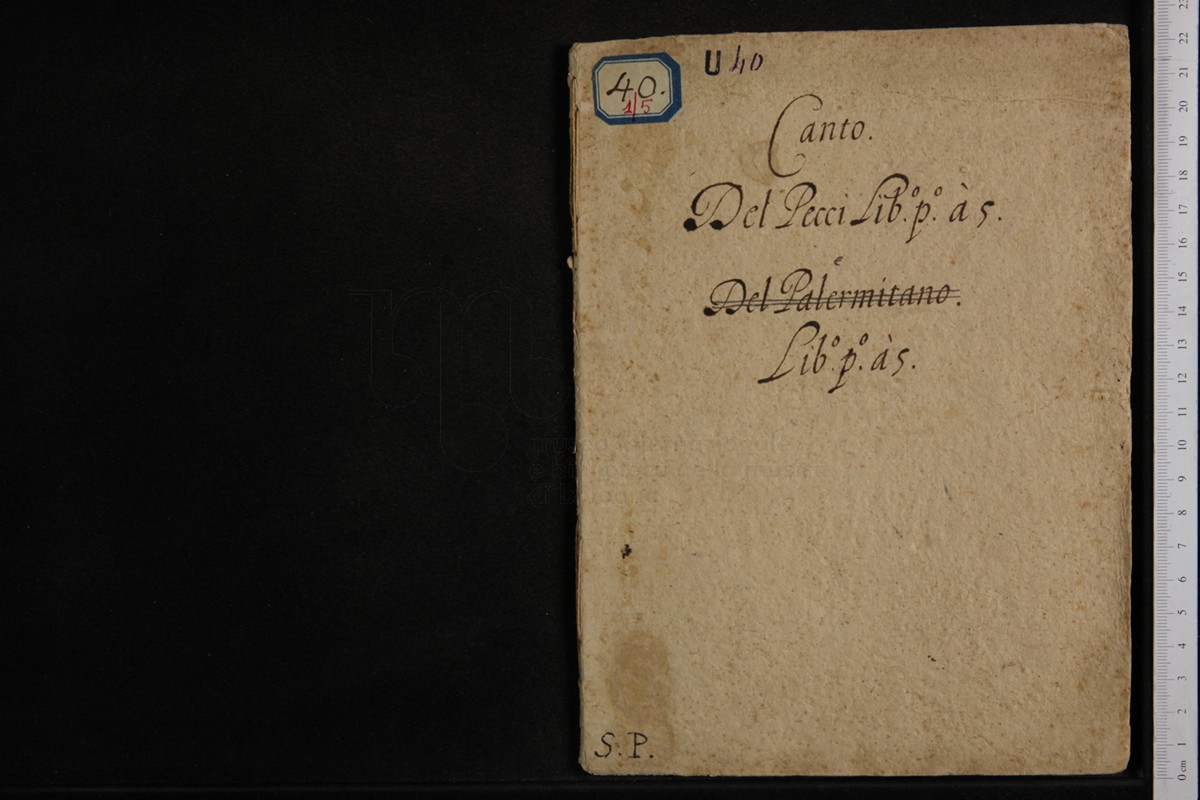 40.
1/5
U 40
Canto.
Del Pecci Lib.º p.º à 5.
Del Palermitano.
Lib.º p.º à 5.
S. P.
0 cm 1 2 3 4 5 6 7 8 9 10 11 12 13 14 15 16 17 18 19 20 21 22 23